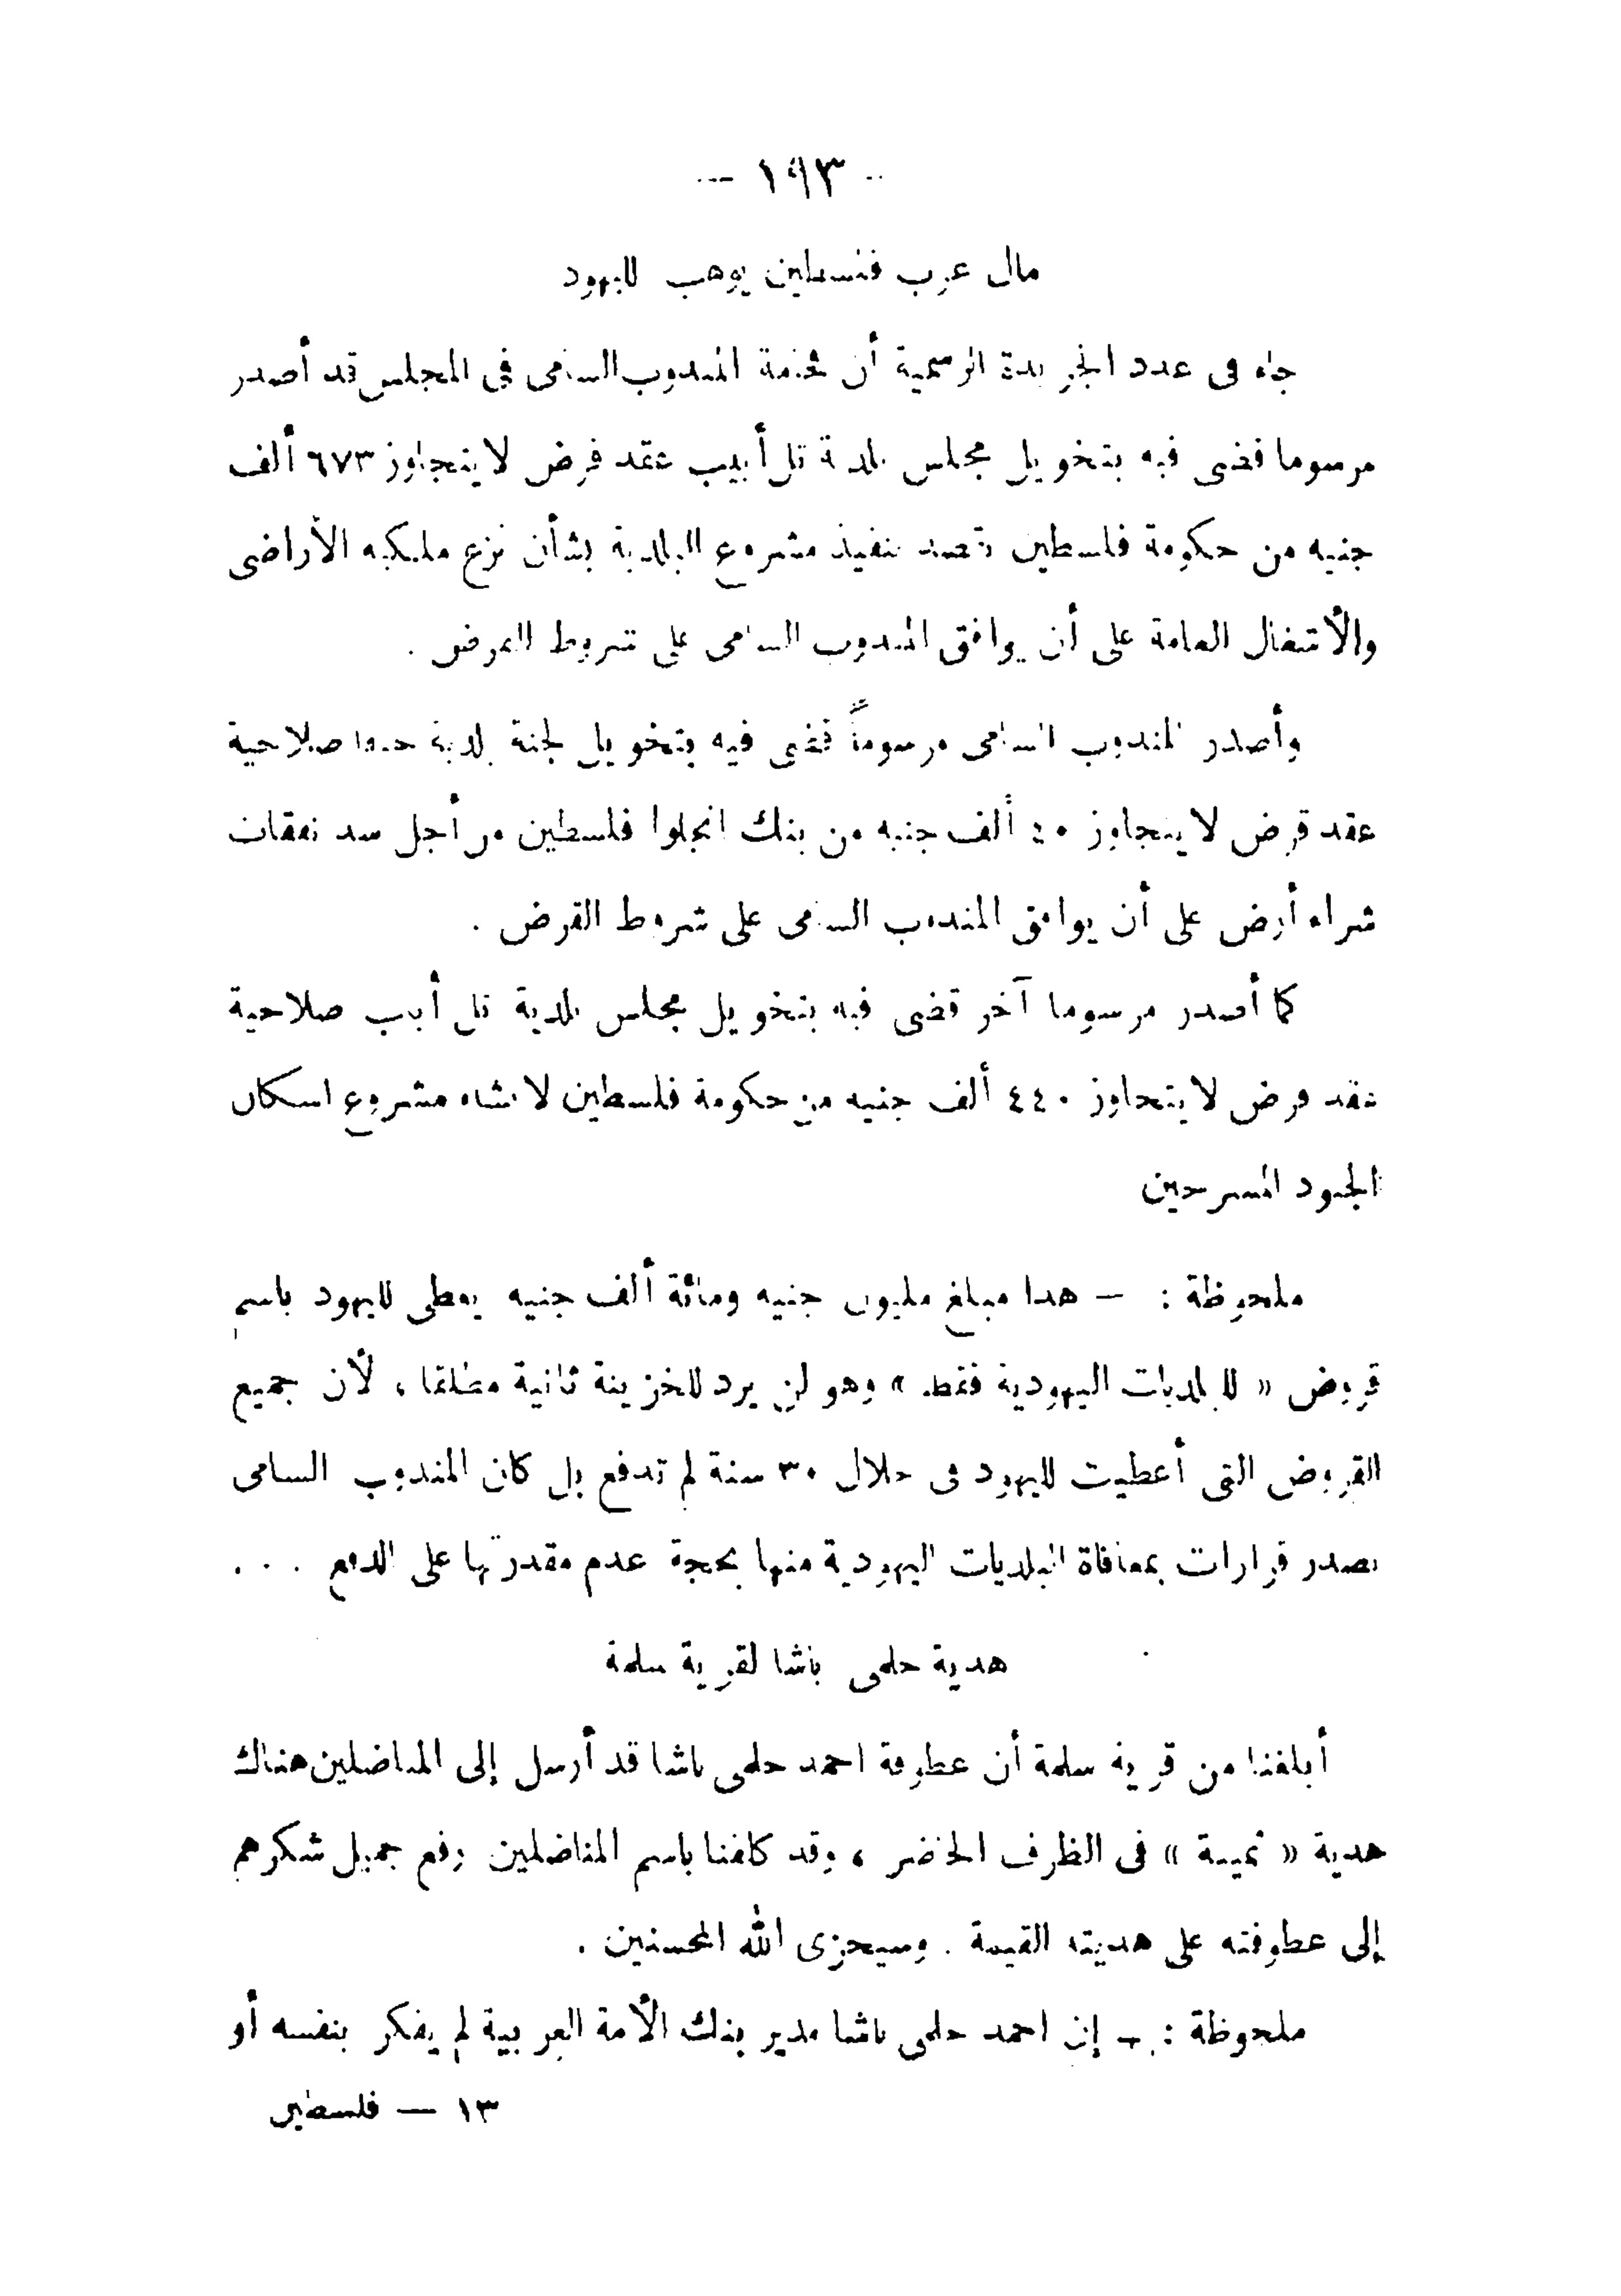 — ١٩٣ —
مال عرب فلسطين يوهب لليهود
جاء فى عدد الجريدة الرسمية أن فخامة المندوب السامى في المجلس قد أصدر
مرسوما قضى فيه بتخويل مجلس بلدية تل أبيب عقد قرض لا يتجاوز ٦٧٣ ألف
جنيه من حكومة فلسطين بقصد تنفيذ مشروع البلدية بشأن نزع ملكيه الأراضى
والأشغال العامة على أن يوافق المندوب السامى على شروط القرض .
وأصدر المندوب السامى مرسوماً قضى فيه بتخويل لجنة بلدية صلاحية
عقد قرض لا يتجاوز ٤٠ ألف جنيه من بنك انجلوا فلسطين من أجل سد نفقات
شراء أرض على أن يوافق المندوب السامى على شروط القرض .
كما أصدر مرسوما آخر قضى فيه بتخويل مجلس بلدية تل أبيب صلاحية
عقد قرض لا يتجاوز ٤٤٠ ألف جنيه من حكومة فلسطين لانشاء مشروع اسكان
الجنود المسرحين
ملحوظة : — هذا مبلغ مليون جنيه ومائة ألف جنيه يعطى لليهود باسم
قروض « للبلديات اليهودية فقط » وهو لن يرد للخزينة ثانية مطلقا ، لأن جميع
القروض التى أعطيت لليهود فى خلال ٣٠ سنة لم تدفع بل كان المندوب السامى
يصدر قرارات بمعافاة البلديات اليهودية منها بحجة عدم مقدرتها على الدفع . . .
هدية حلمى باشا لقرية سلمة
أبلغنا من قرية سلمة أن عطوفة احمد حلمى باشا قد أرسل إلى المناضلين هناك
هدية « ثمينة » فى الظرف الحاضر ، وقد كلفنا باسم المناضلين رفع جميل شكرهم
إلى عطوفته على هديته القيمة . وسيجزى الله المحسنين .
ملحوظة : — إن احمد حلمى باشا مدير بنك الأمة العربية لم يفكر بنفسه أو
١٣ — فلسطين